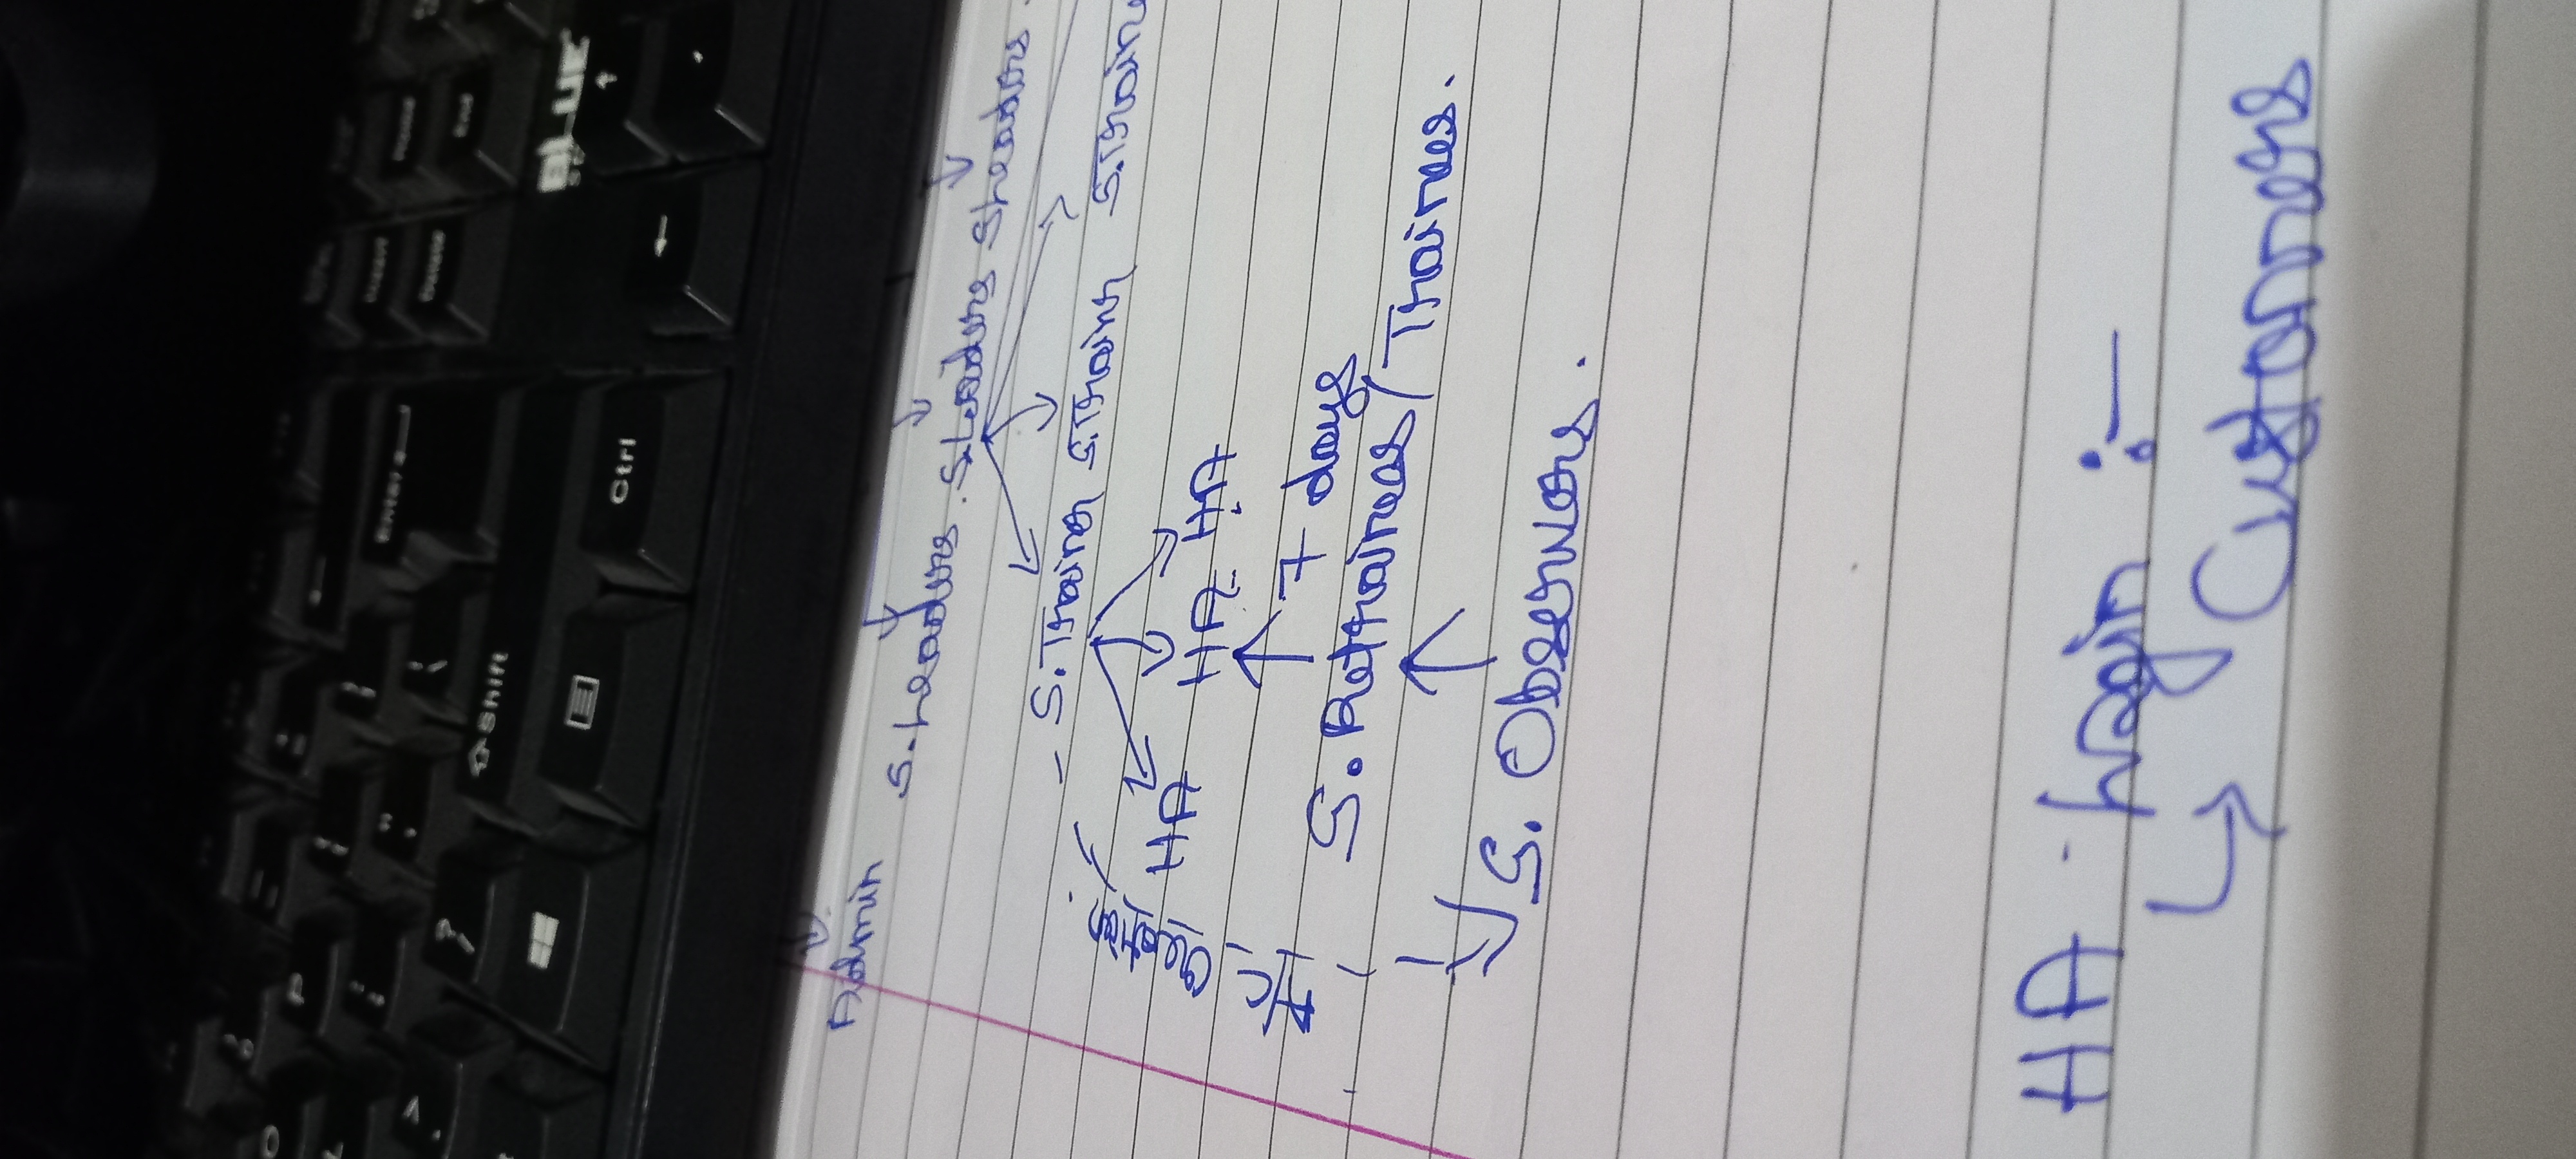 O P
Enter
Insert
Home
Delete
End
Shift
BLUE
Ctrl
Admin
S.Leaders. S.Leaders S.Leaders.
S.Trainer S.Trainr S.Traine
A/C Creation.
HA HA HA
7 days
S. Retraineas/Trainees.
S. Observors.
HA - Login :-
Customers